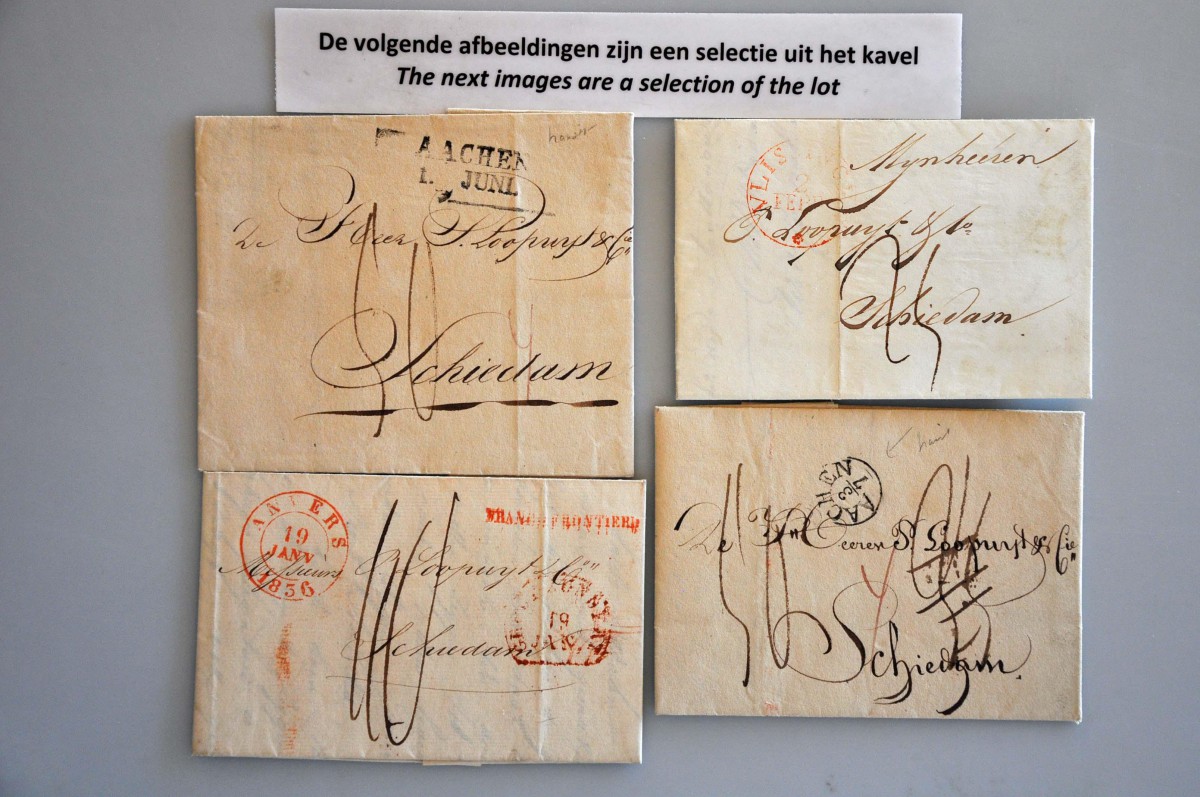 De volgende afbeeldingen zijn een selectie uit het kavel
The next images are a selection of the lot
AACHEN
1. JUNI
De Heer P. Loopuyt & Cie
Schiedam
VLIS
2
FEB
Mynheeren
P. Loopuyt & Co
Schiedam
ANVERS
19
JANV
1836
FRANCO FRONTIERE
Messieurs P. Loopuyt & Co
19
JAN.
Schiedam
AACHEN
De Heeren P. Loopuyt & Cie
Schiedam.